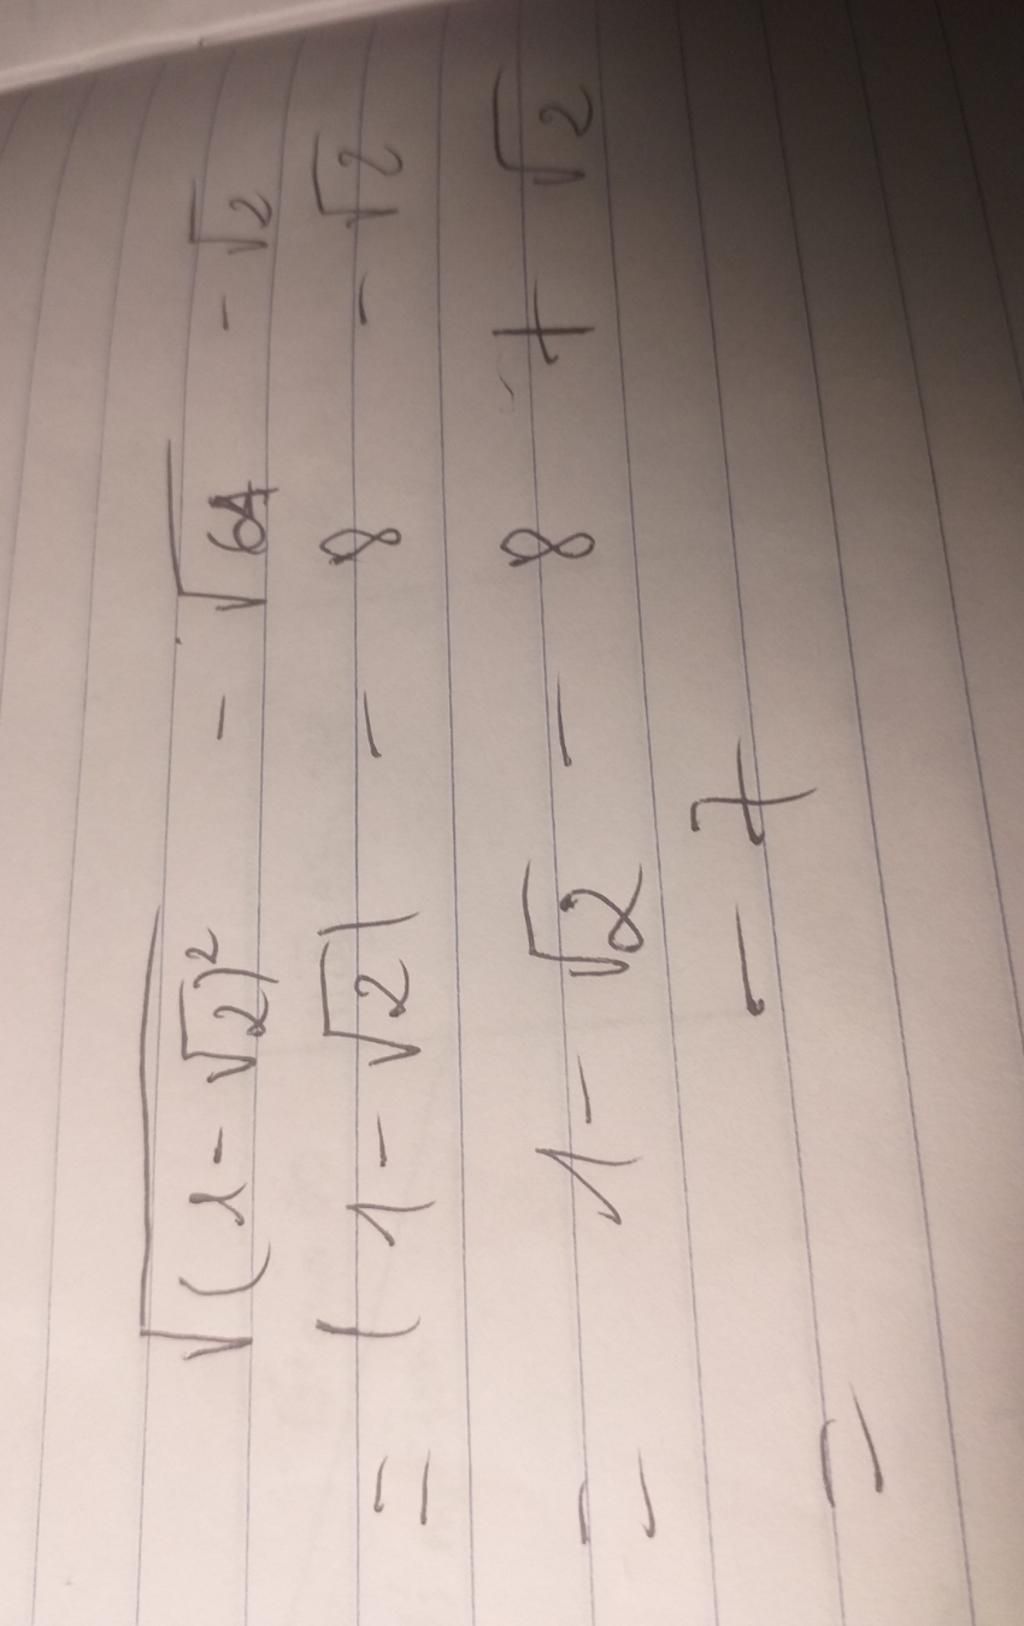 √(1 - √2)² - √64 - √2
= |1 - √2| - 8 - √2
= 1 - √2 - 8 + √2
= - 7